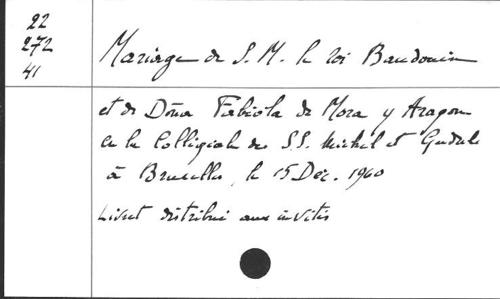 22
272
41
Mariage de S. M. le roi Baudouin
et de Doña Fabiola de Mora y Aragon
en la Collégiale des S.S. Michel et Gudule
à Bruxelles, le 15 Déc. 1960
Livret distribué aux invités